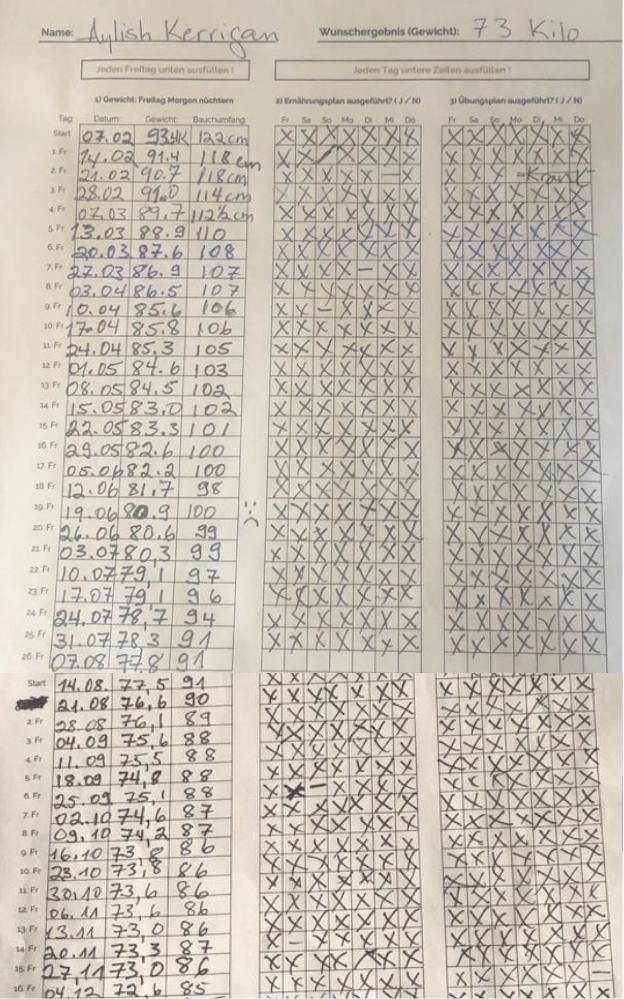 Name: Aylish Kerrigan Wunschergebnis (Gewicht): 73 Kilo
Jeden Freitag unten ausfüllen ! Jeden Tag untere Zeilen ausfüllen !
1) Gewicht: Freitag Morgen nüchtern 2) Ernährungsplan ausgeführt? ( J / N) 3) Übungsplan ausgeführt? ( J / N)
Tag: Datum: Gewicht: Bauchumfang Fr Sa So Mo Di Mi Do Fr Sa So Mo Di Mi Do
Start 07.02 93.4K 122cm X X X X X X X X X X X X X X
1. Fr 14.02 91.4 118 cm X X / X X X X X X X X X X X
2. Fr 21.02 90.7 118cm X X X X X — X X X X – Krank
3. Fr 28.02 91.0 114cm X X X X X X X X X X X X X X
4. Fr 07.03 89.7 112½cm X X X X X X X X X X X X X X
5. Fr 13.03 88.9 110 X X X X X X X X X X X X X X
6. Fr 20.03 87.6 108 X X X X X X X X X X X X X X
7. Fr 27.03 86.9 107 X X X X — X X X X X X X X X
8. Fr 03.04 86.5 107 X X X X X X X X X X X X X X
9. Fr 10.04 85.6 106 X X – X X X X X X X X X X X
10. Fr 17.04 85.8 106 X X X X X X X X X X X X X X
11. Fr 24.04 85,3 105 X X X X X X X X X X X X X X
12. Fr 01.05 84.6 103 X X X X X X X X X X X X X X
13. Fr 08.05 84.5 102 X X X X X X X X X X X X X X
14. Fr 15.05 83,0 102 X X X X X X X X X X X X X X
15. Fr 22.05 83.3 101 X X X X X X X X X X X X X X
16. Fr 29.05 82.6 100 X X X X X X X X X X X X X X
17. Fr 05.06 82.2 100 X X X X X X X X X X X X X X
18 Fr 12.06 81,7 98 X X X X X X X X X X X X X X
19. Fr 19.06 80.9 100 X X X X X X X X X X X X X X
20. Fr 26.06 80.6 99 X X X X X X X X X X X X X X
21. Fr 03.07 80,3 99 X X X X X X X X X X X X X X
22. Fr 10.07 79,1 97 X X X X X X X X X X X X X X
23. Fr 17.07 79,1 96 X X X X X X X X X X X X X X
24. Fr 24.07 78,7 94 X X X X X X X X X X X X X X
25. Fr 31.07 78,3 91 X X X X X X X X X X X X X X
26. Fr 07.08 77,8 91
Start 14.08. 77,5 91 X X X X X X X X X X X X X X
21.08 76,6 90 X X X X X X X X X X X X X X
2. Fr 28.08 76,1 89 X X X X X X X X X X X X X X
3. Fr 04.09 75,6 88 X X X X X X X X X X X X X X
4. Fr 11.09 75,5 88 X X X X X X X X X X X X X X
5. Fr 18.09 74,8 88 X X X X X X X X X X X X X X
6. Fr 25.09 75,1 88 X X – X X X X X X X X X X X
7. Fr 02.10 74,6 87 X X X X X X X X X X X X X X
8. Fr 09.10 74,2 87 X X X X X X X X X X X X X X
9. Fr 16.10 73,8 86 X X X X X X X X X X X X X X
10. Fr 23.10 73,8 86 X X X X X X X X X X X X X X
11. Fr 30.10 73,6 86 X X X X X X X X X X X X X X
12. Fr 06.11 73,6 86 X X X X X X X X X X X X X X
13. Fr 13.11 73,0 86 X – X X X X X X X X X X X X
14. Fr 20.11 73,3 87 X X X X X X X X X X X X X X
15. Fr 27,11 73,0 86 X X X X X X X X X X X X X —
16. Fr 04.12 72,6 85